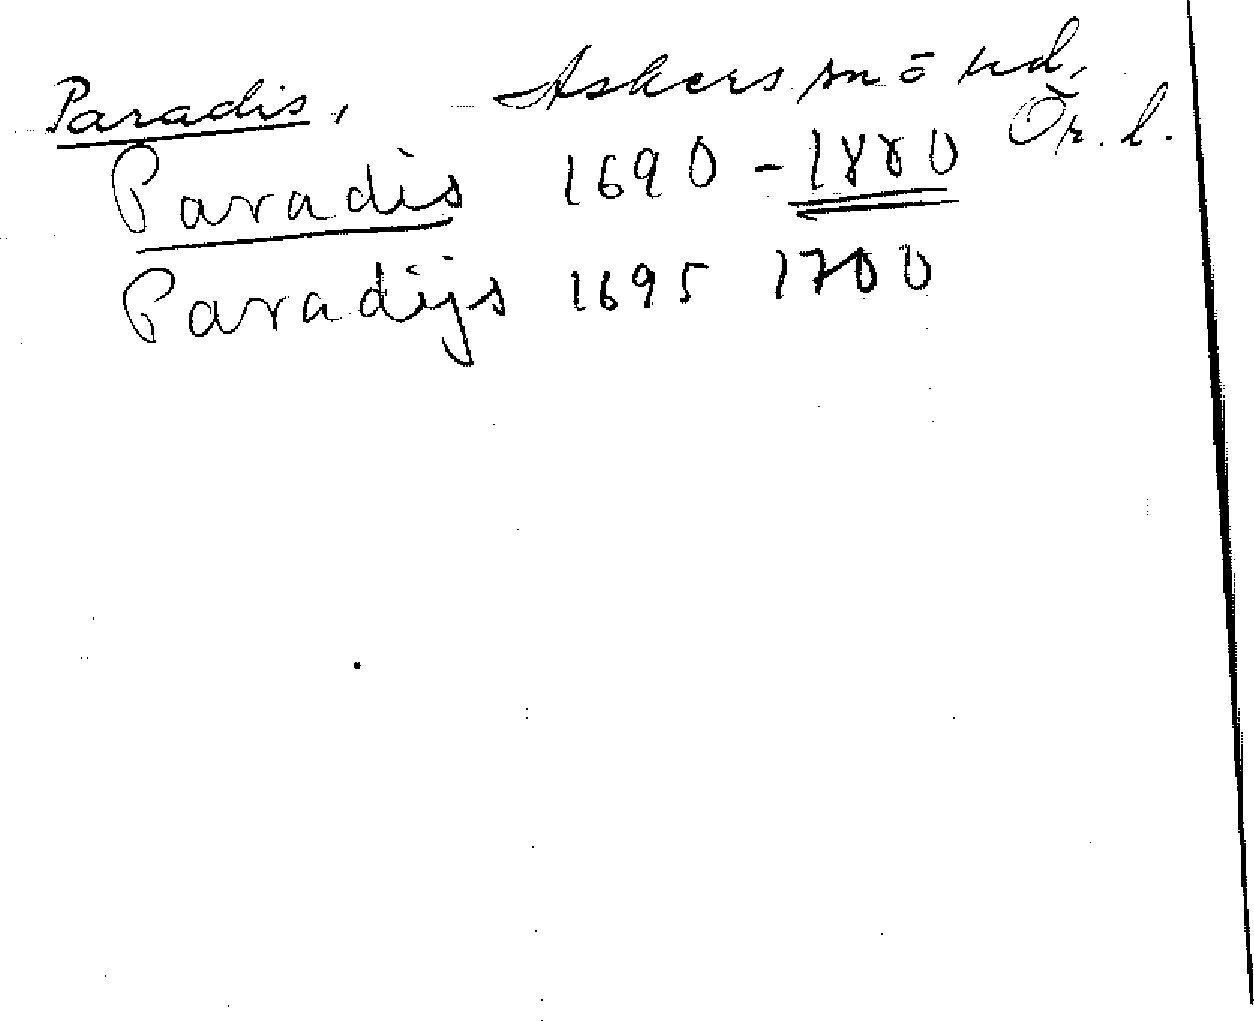 Paradis, Askers sn ö hd,
Ör. l.
Paradis 1690 - 1880
Paradijs 1695 1700